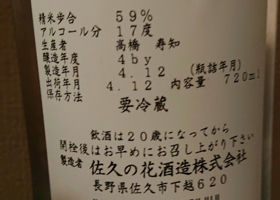 精米歩合 59%
アルコール分 17度
生産者 高橋 寿知
醸造年度 4by
製造年月 4.12 (瓶詰年月)
出荷年月 4.12 内容量 720ml
保存方法
要冷蔵
飲酒は20歳になってから
開栓後はお早めにお召し上がり下さい
製造者 佐久の花酒造株式会社
長野県佐久市下越620